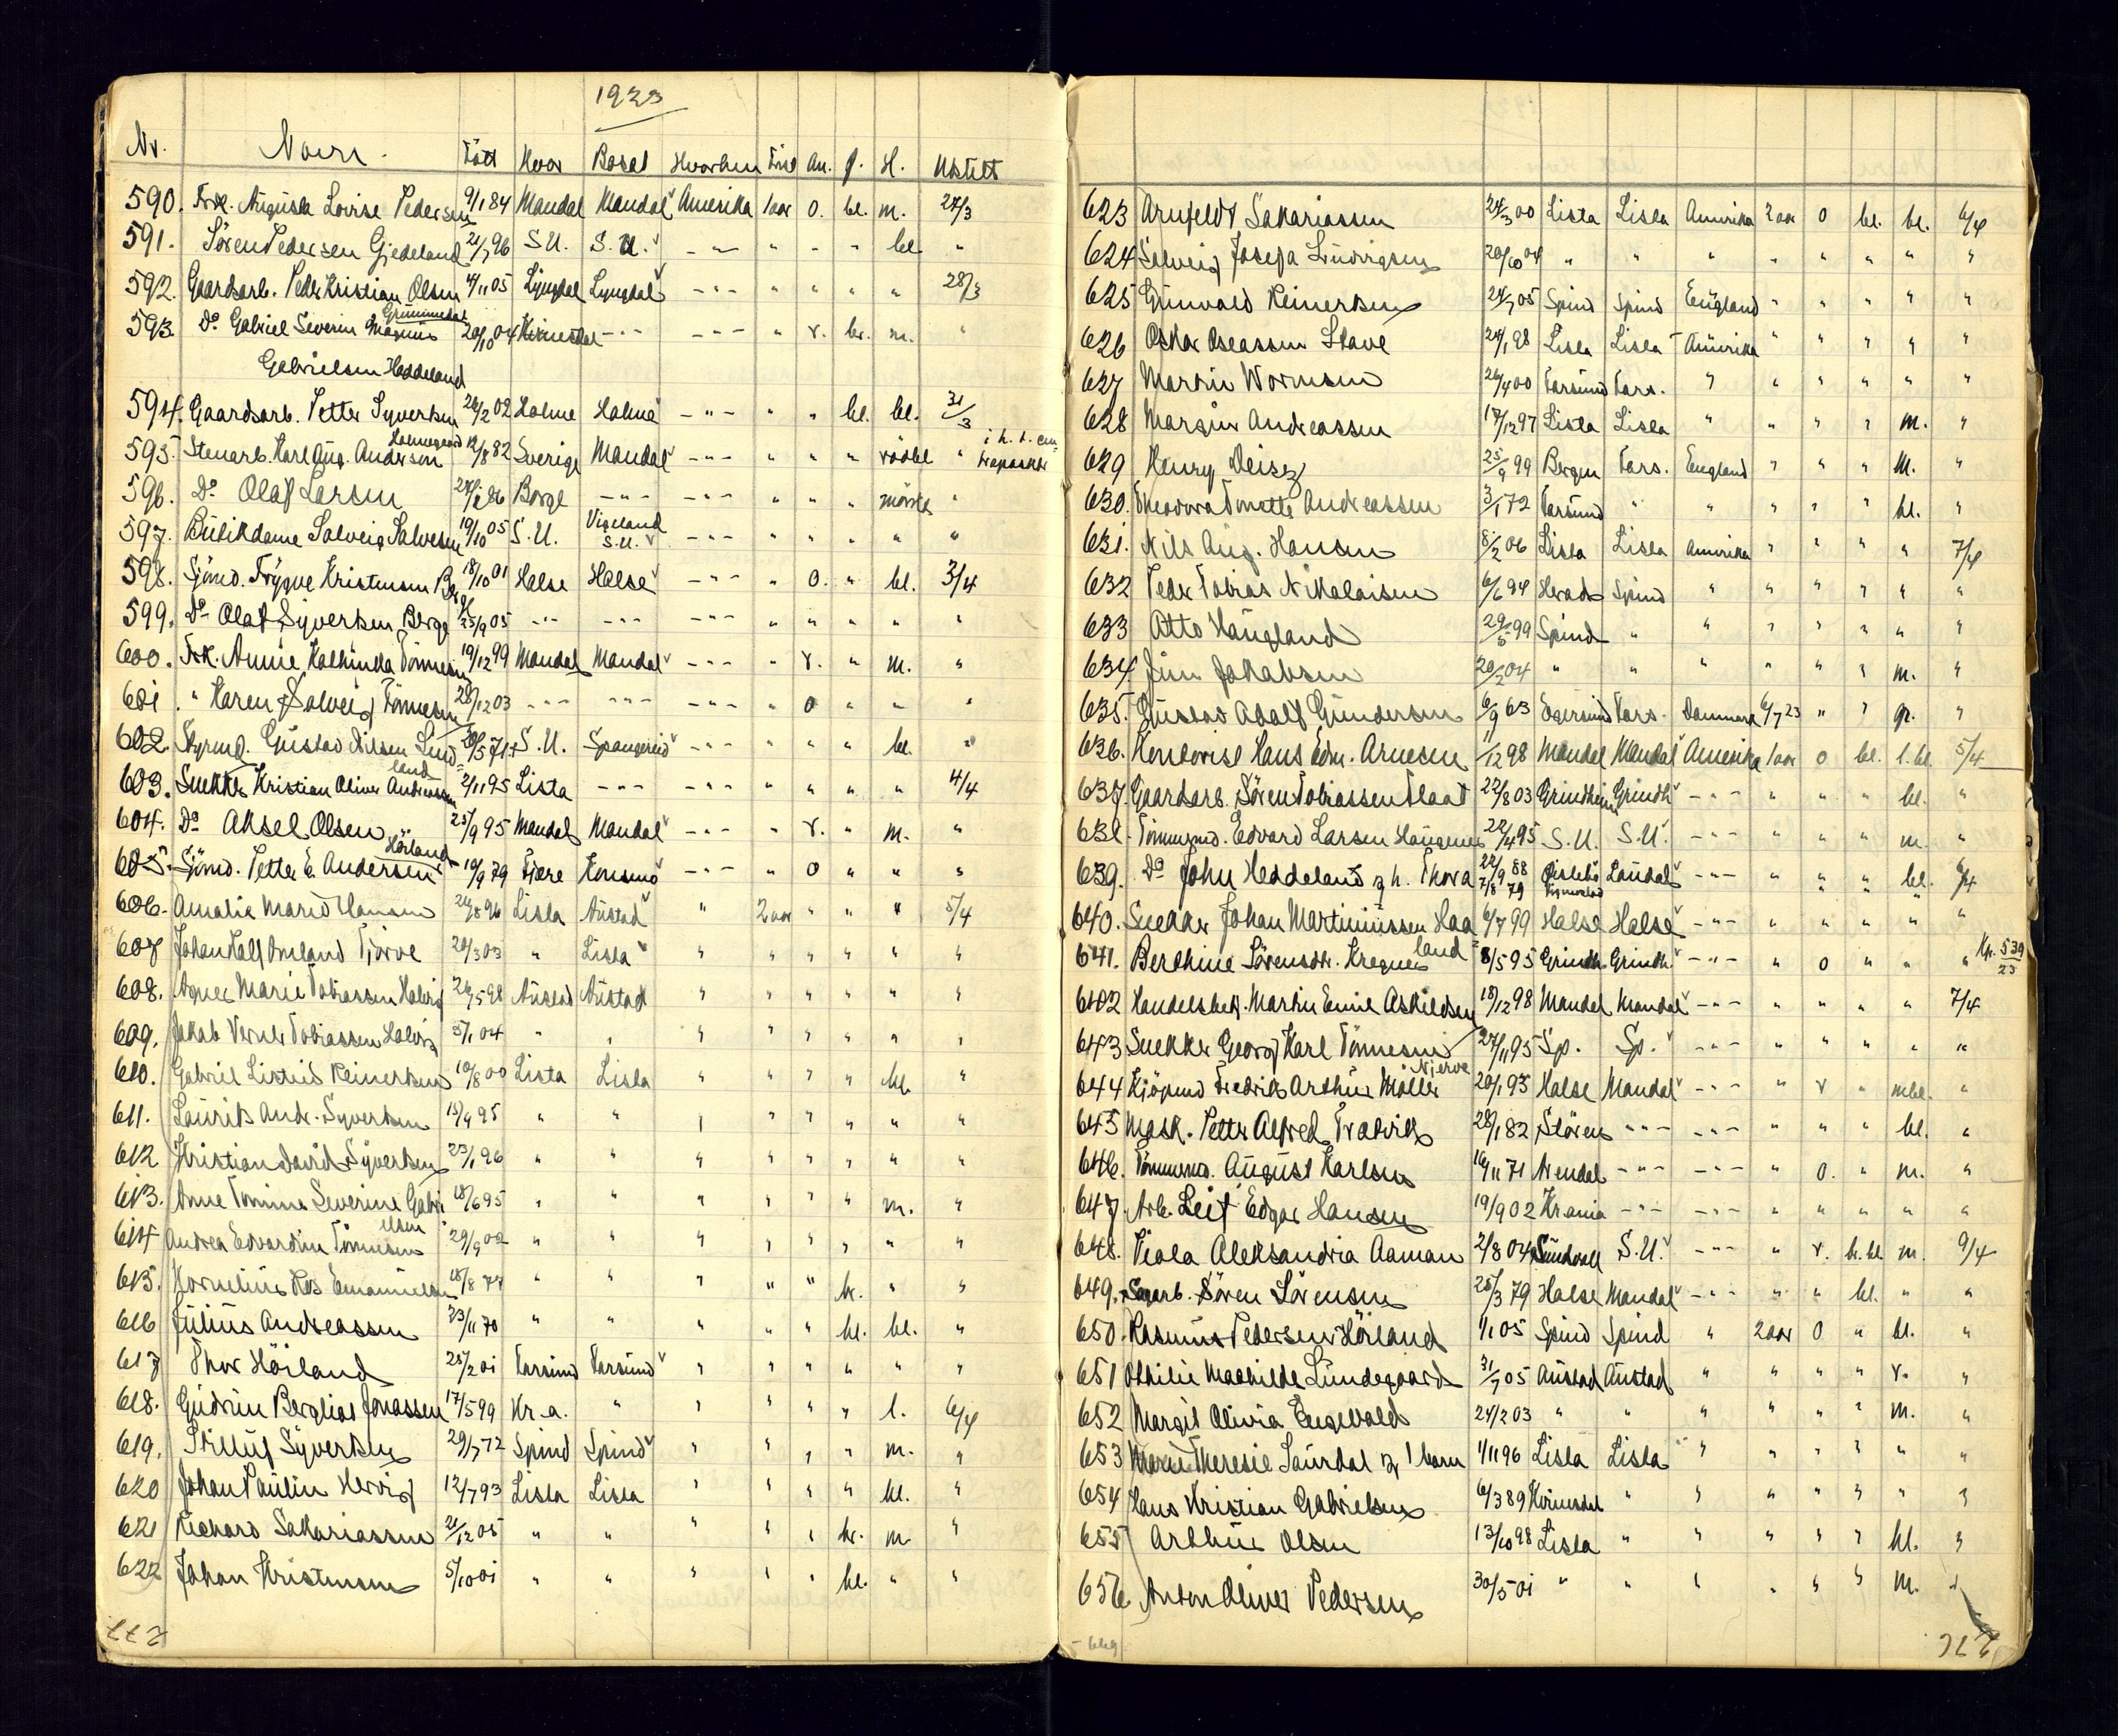 1923
Nr. Navn. Född Hvor Bosat Hvorhen Tid An. Ø. H. Utstilt
590. Frk. Augusta Lovise Pedersen 9/1 84 Mandal Mandal Amerika 1 aar O. bl. m. 27/3
591. Sören Pedersen Gjedeland 21/7 96 S.U. S.U. - " - " " " bl. "
592. Gaardsarb. Peder Kristian Olsen 4/11 05 Lyngdal Lyngdal - " - " " " " 28/3
Grummedal
593. Do Gabriel Severin Magnus 20/10 04 Kvinesdal - " - - " - " r. br. m. "
Gabrielsen Heddeland
594. Gaardsarb. Petter Syvertsen 26/2 02 Holme Holme - " - " " bl. bl. 31/3
Holmegaard i h. t.
595. Stenarb. Karl Aug. Anderson 12/8 82 Sverige Mandal - " - " " " rödbl "
596. Do Olaf Larsen 86 Borge - " - - " - " " " mörk "
597. Butikdame Solveig Salvesen 19/10 05 S.U. Vigeland S.U. - " - " " " " "
598. Sjömd. Trygve Kristensen Berge 18/10 01 Halse Halse - " - " O. " bl. 3/4
599. Do Olaf Syvertsen Berge 25/9 05 - " - - " - - " - " " " " "
600. Frk. Annie Kathinka Tönnesen 19/12 99 Mandal Mandal - " - " r. " m. "
601. " Karen Solveig Tönnesen 28/12 03 - " - - " - - " - " O " " "
602. Styrmd. Gustav Nilsen Lind= 20/5 71 S.U. Spangereid - " - " " " bl. "
land
603. Snekker Kristian Oliver Andreassen 2/11 95 Lista - " - - " - " " " " 4/4
604. Do Aksel Olsen 25/9 95 Mandal Mandal - " - " r. " m. "
Höiland
605. Sjömd. Petter E. Andersen 10/9 79 Fjære Konsmo - " - " O " " "
606. Amalie Marie Hansen 24/8 96 Lista Austad " 2 aar " " " 5/4
607 Johan Ralf Omland Tjörve 20/3 03 " Lista " " " " " "
608. Agnes Marie Tobiassen 26/5 98 Austad Austad " " " " " "
609. Jakob Verner Tobiassen 5/1 04 " " " " " " " "
610. Gabriel Listeid Reinertsen 10/8 00 Lista Lista " " " " bl. "
611. Laurits Andr. Syvertsen 15/4 95 " " " " " " " "
612 Kristian David Syvertsen 23/1 96 " " " " " " " "
613. Anne Tomine Severine Gabri 18/6 95 " " " " " " m. "
elsen
614 Andrea Edvardine Tönnesen 29/9 02 " " " " " " " "
615. Kornelius Emanuelsen 18/8 77 " " " " " br. " "
616 Julius Andreassen 23/11 70 " " " " " bl. bl. "
617 Thor Höiland 25/2 01 Farsund Farsund " " " " " "
618. Gudrun Bergliot Jonassen 17/5 99 Kr.a. " " " " " l. 6/4
619. Syvertsen 29/7 72 Spind Spind " " " " m. "
620 Johan Paulin Hervig 12/7 93 Lista Lista " " " " bl. "
621 Rickard Sakariassen 21/12 05 " " " " " br. m. "
622 Johan Kristensen 5/10 01 " " " " " bl. " "
277
623 Arnfeldt Sakariassen 24/3 00 Lista Lista Amerika 2 aar O bl. bl. 6/4
624 Solveig Josefa Ludvigsen 20/10 04 " " " " " " " "
625 Gunvald Reinertsen 24/7 05 Spind Spind England " " " " "
626 Oskar Oseassen Stave 24/1 98 Lista Lista Amerika " " " " "
627 Martin Wormsen 26/4 00 Farsund Fars. " " " " " "
628 Margin Andreassen 17/12 97 Lista Lista " " " " m. "
629 Henry Deisz 25/9 99 Bergen Fars. England " " " m. "
630. Theodora Tonette Andreassen 3/1 72 Farsund " " " " " bl. "
631. Nils Aug. Hansen 8/2 06 Lista Lista Amerika " " " " 7/4
632 Peder Tobias Nikolaisen 6/6 94 Herad Spind " " " " " "
633 Otto Haugland 29/5 99 Spind " " " " " " "
634. Jim Jakobsen 20/2 04 " " " " " " m. "
635. Gustav Adolf Gundersen 6/9 63 Egersund Fars. Danmark 6/7 23 " " gr. "
636. Kontorist Hans Edm. Arnesen 11/12 98 Mandal Mandal Amerika 1 aar O bl. l.bl. 5/4
637. Gaardsarb. Sören Tobiassen Flaat 22/8 03 Grindheim Grindh. - " - " " " bl. "
638. Tömmermd. Edvard Larsen Haugenes 22/4 95 S.U. S.U. - " - " " " m. "
639. Do John Heddeland og h. Thora 22/9 88 7/8 79 Öislebö Laudal - " - " " " bl. 6/4
640. Snekker Johan Martiniussen Haa 6/7 99 Halse Halse - " - " " " " "
land
641. Berthine Sörensdtr. Kregnes 8/5 95 Grindh. Grindh. - " - " O " " " Kp. 539/23
6402 Handelsbetj. Martin Emil Askildsen 18/12 98 Mandal Mandal - " - " " " " 7/4
643 Snekker Georg Karl Tönnesen 27/11 95 Sp. Sp. - " - " " " " "
Njerve
644 Kjöpmd Fredrik Arthur Möller 20/1 93 Halse Mandal - " - " r " mbl. "
645 Mask. Petter Alfred Fredrik 28/1 82 Stören - " - - " - " " " bl. "
646. Tömmermd. August Karlsen 16/11 71 Arendal - " - - " - " O. " m. "
647. Arb. Leif Edgar Hansen 19/9 02 Kr.ania - " - - " - " " " " "
648. Viola Aleksandria Aaman 2/8 04 Sundsvall S.U. - " - " r. br.bl. m. 9/4
649. Sagarb. Sören Sörensen 25/3 79 Halse Mandal - " - " " bl. " "
650. Rasmus Pedersen Höiland 1/1 05 Spind Spind " 2 aar O " bl. "
651 Othilie Mathilde Lundegaard 31/7 05 Austad Austad " " " " r. "
652 Margit Olivia Engevold 24/2 03 " " " " " " m. "
653 Marie Theresie Saurdal og 1 barn 1/11 96 Lista Lista " " " " " "
654 Hans Kristian Gabrielsen 6/3 89 Kvinesdal " " " " " " "
655 Arthur Olsen 13/10 98 Lista " " " " " bl. "
656. Anton Oliver Pedersen 30/5 01 " " " " " " m. "
- 669